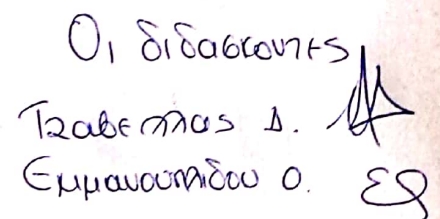 Οι διδασκοντες
Τζαβελλας Δ.
Εμμανουηλιδου Ο.